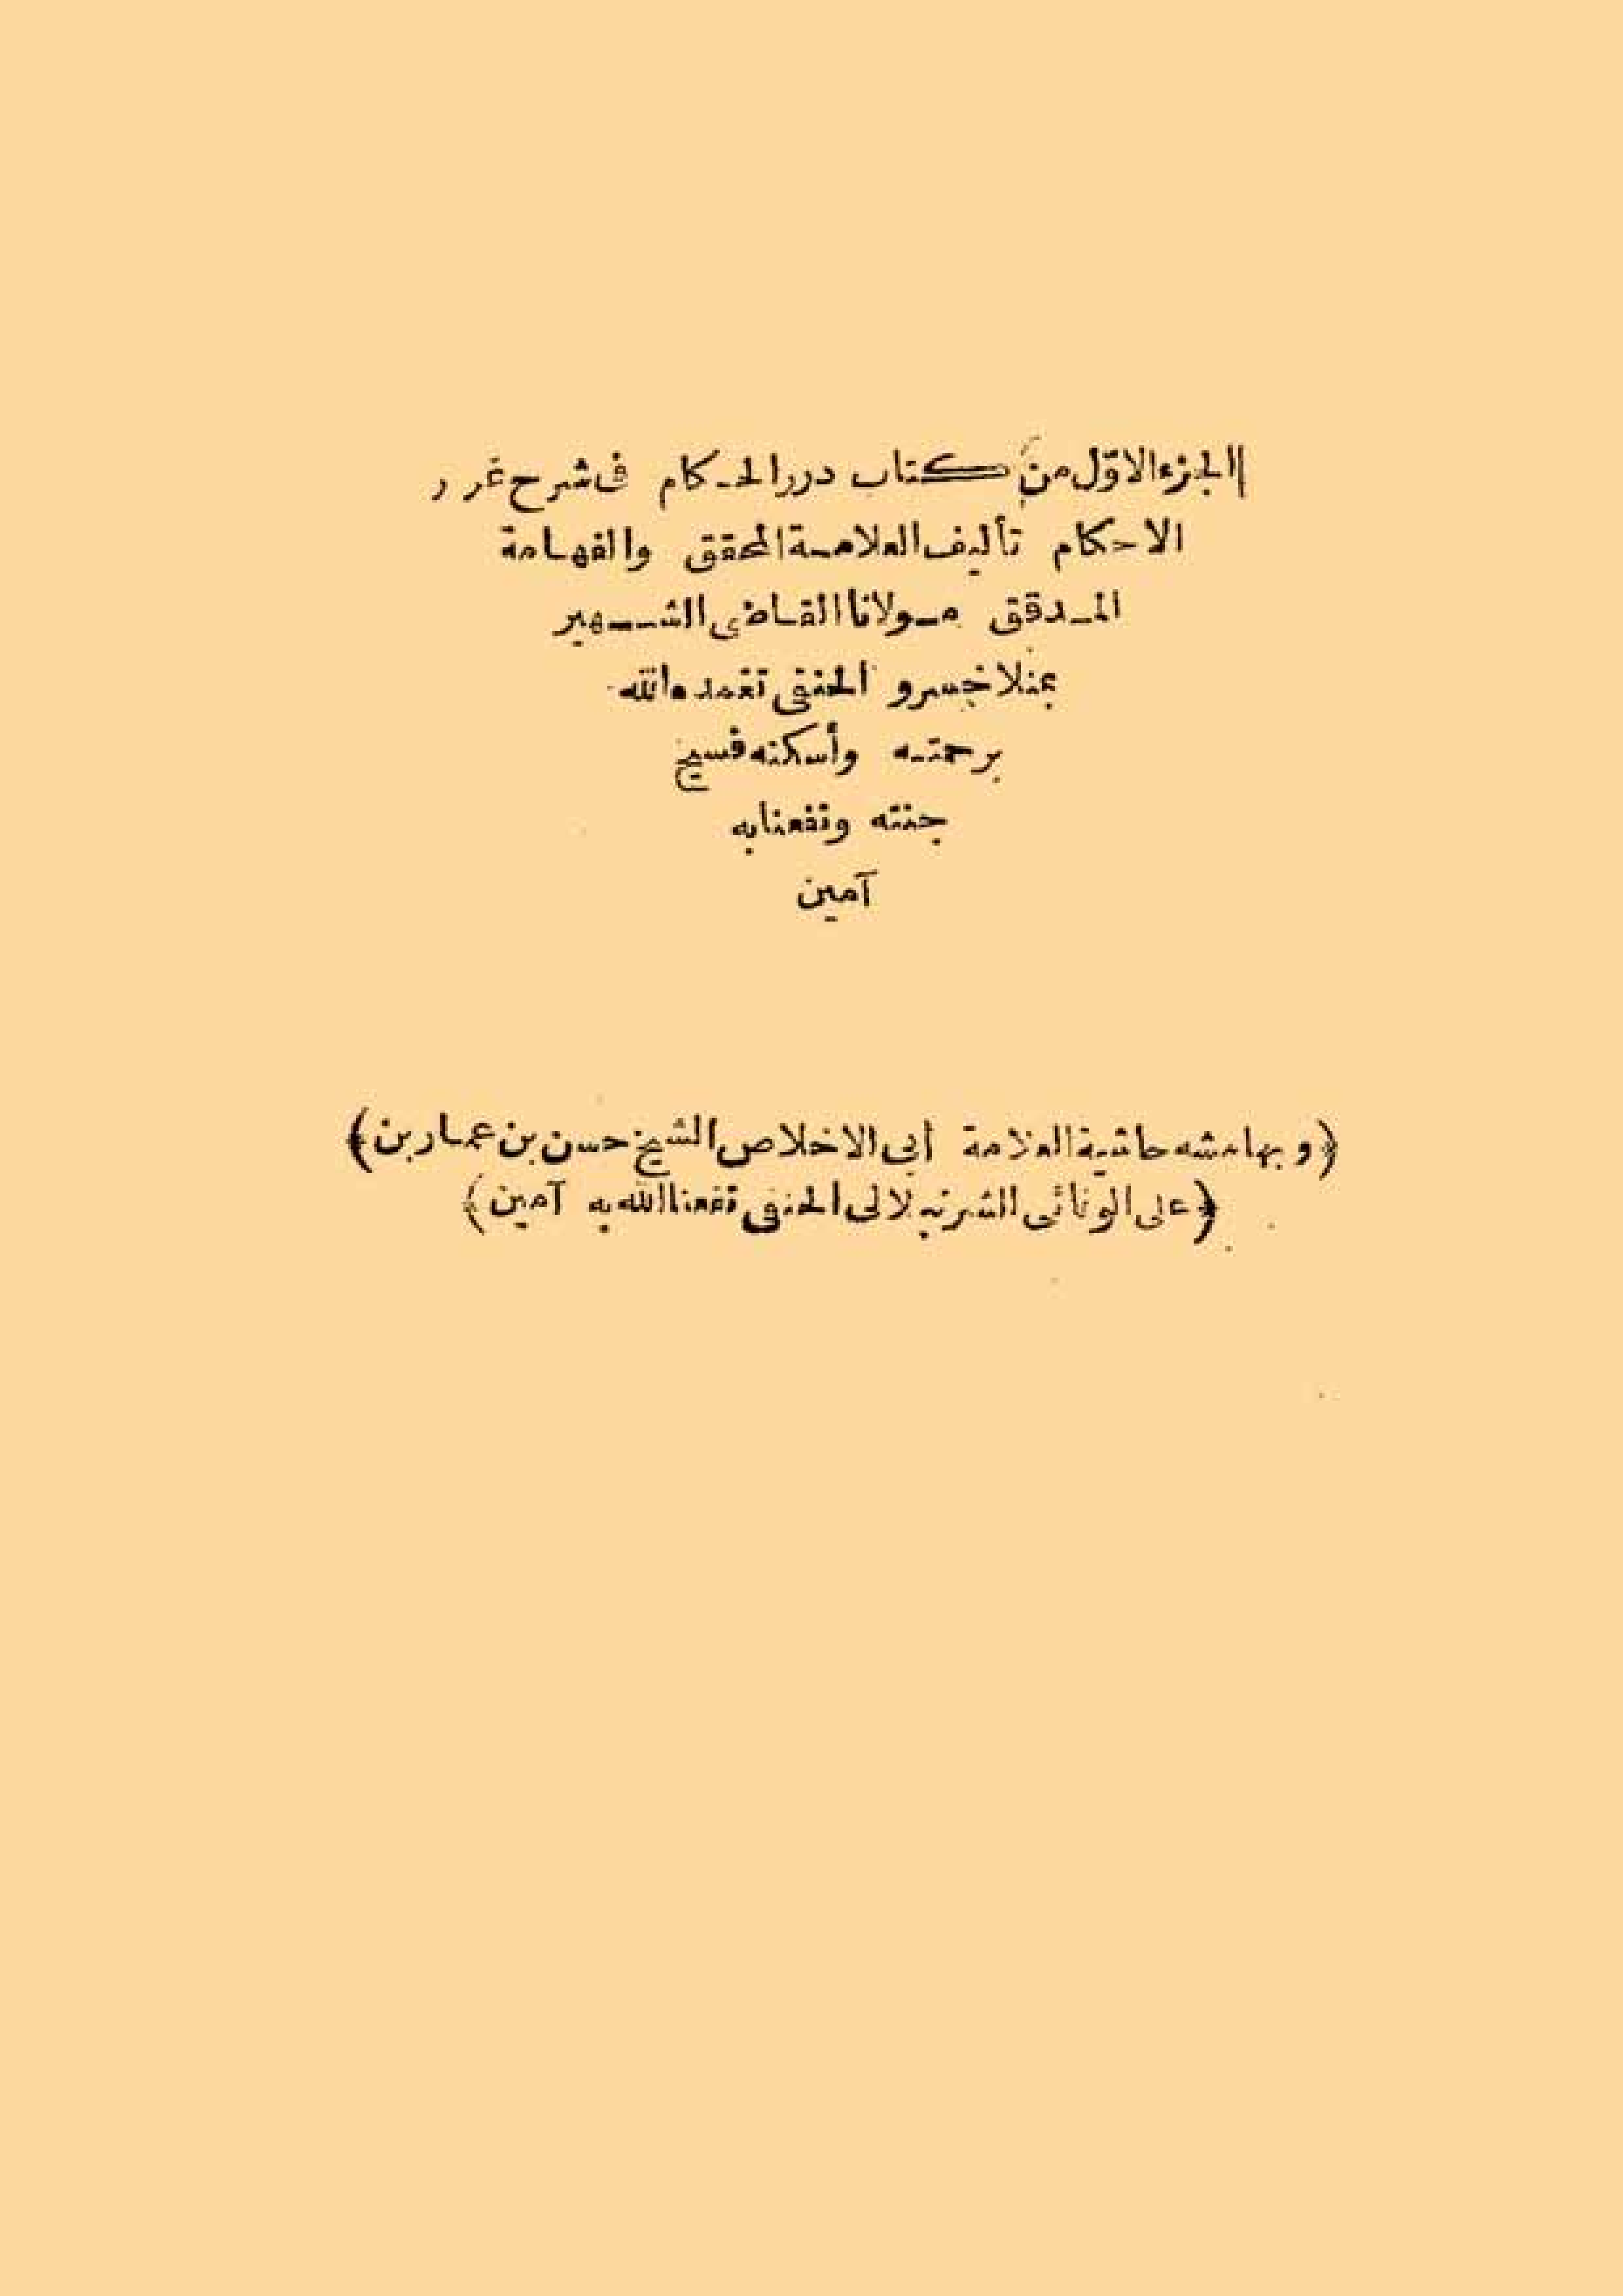 الجزء الاوّل من كتاب درر الحكام فى شرح غرر
الاحكام تأليف العلامة المحقق والفهامة
المدقق مولانا القاضى الشهير
بمنلا خسرو الحنفى تغمده الله
برحمته وأسكنه فسيح
جنته ونفعنا به
آمين
﴿وبهامشه حاشية العلامة أبى الاخلاص الشيخ حسن بن عمار بن﴾
﴿على الوفائى الشرنبلالى الحنفى نفعنا الله به آمين﴾